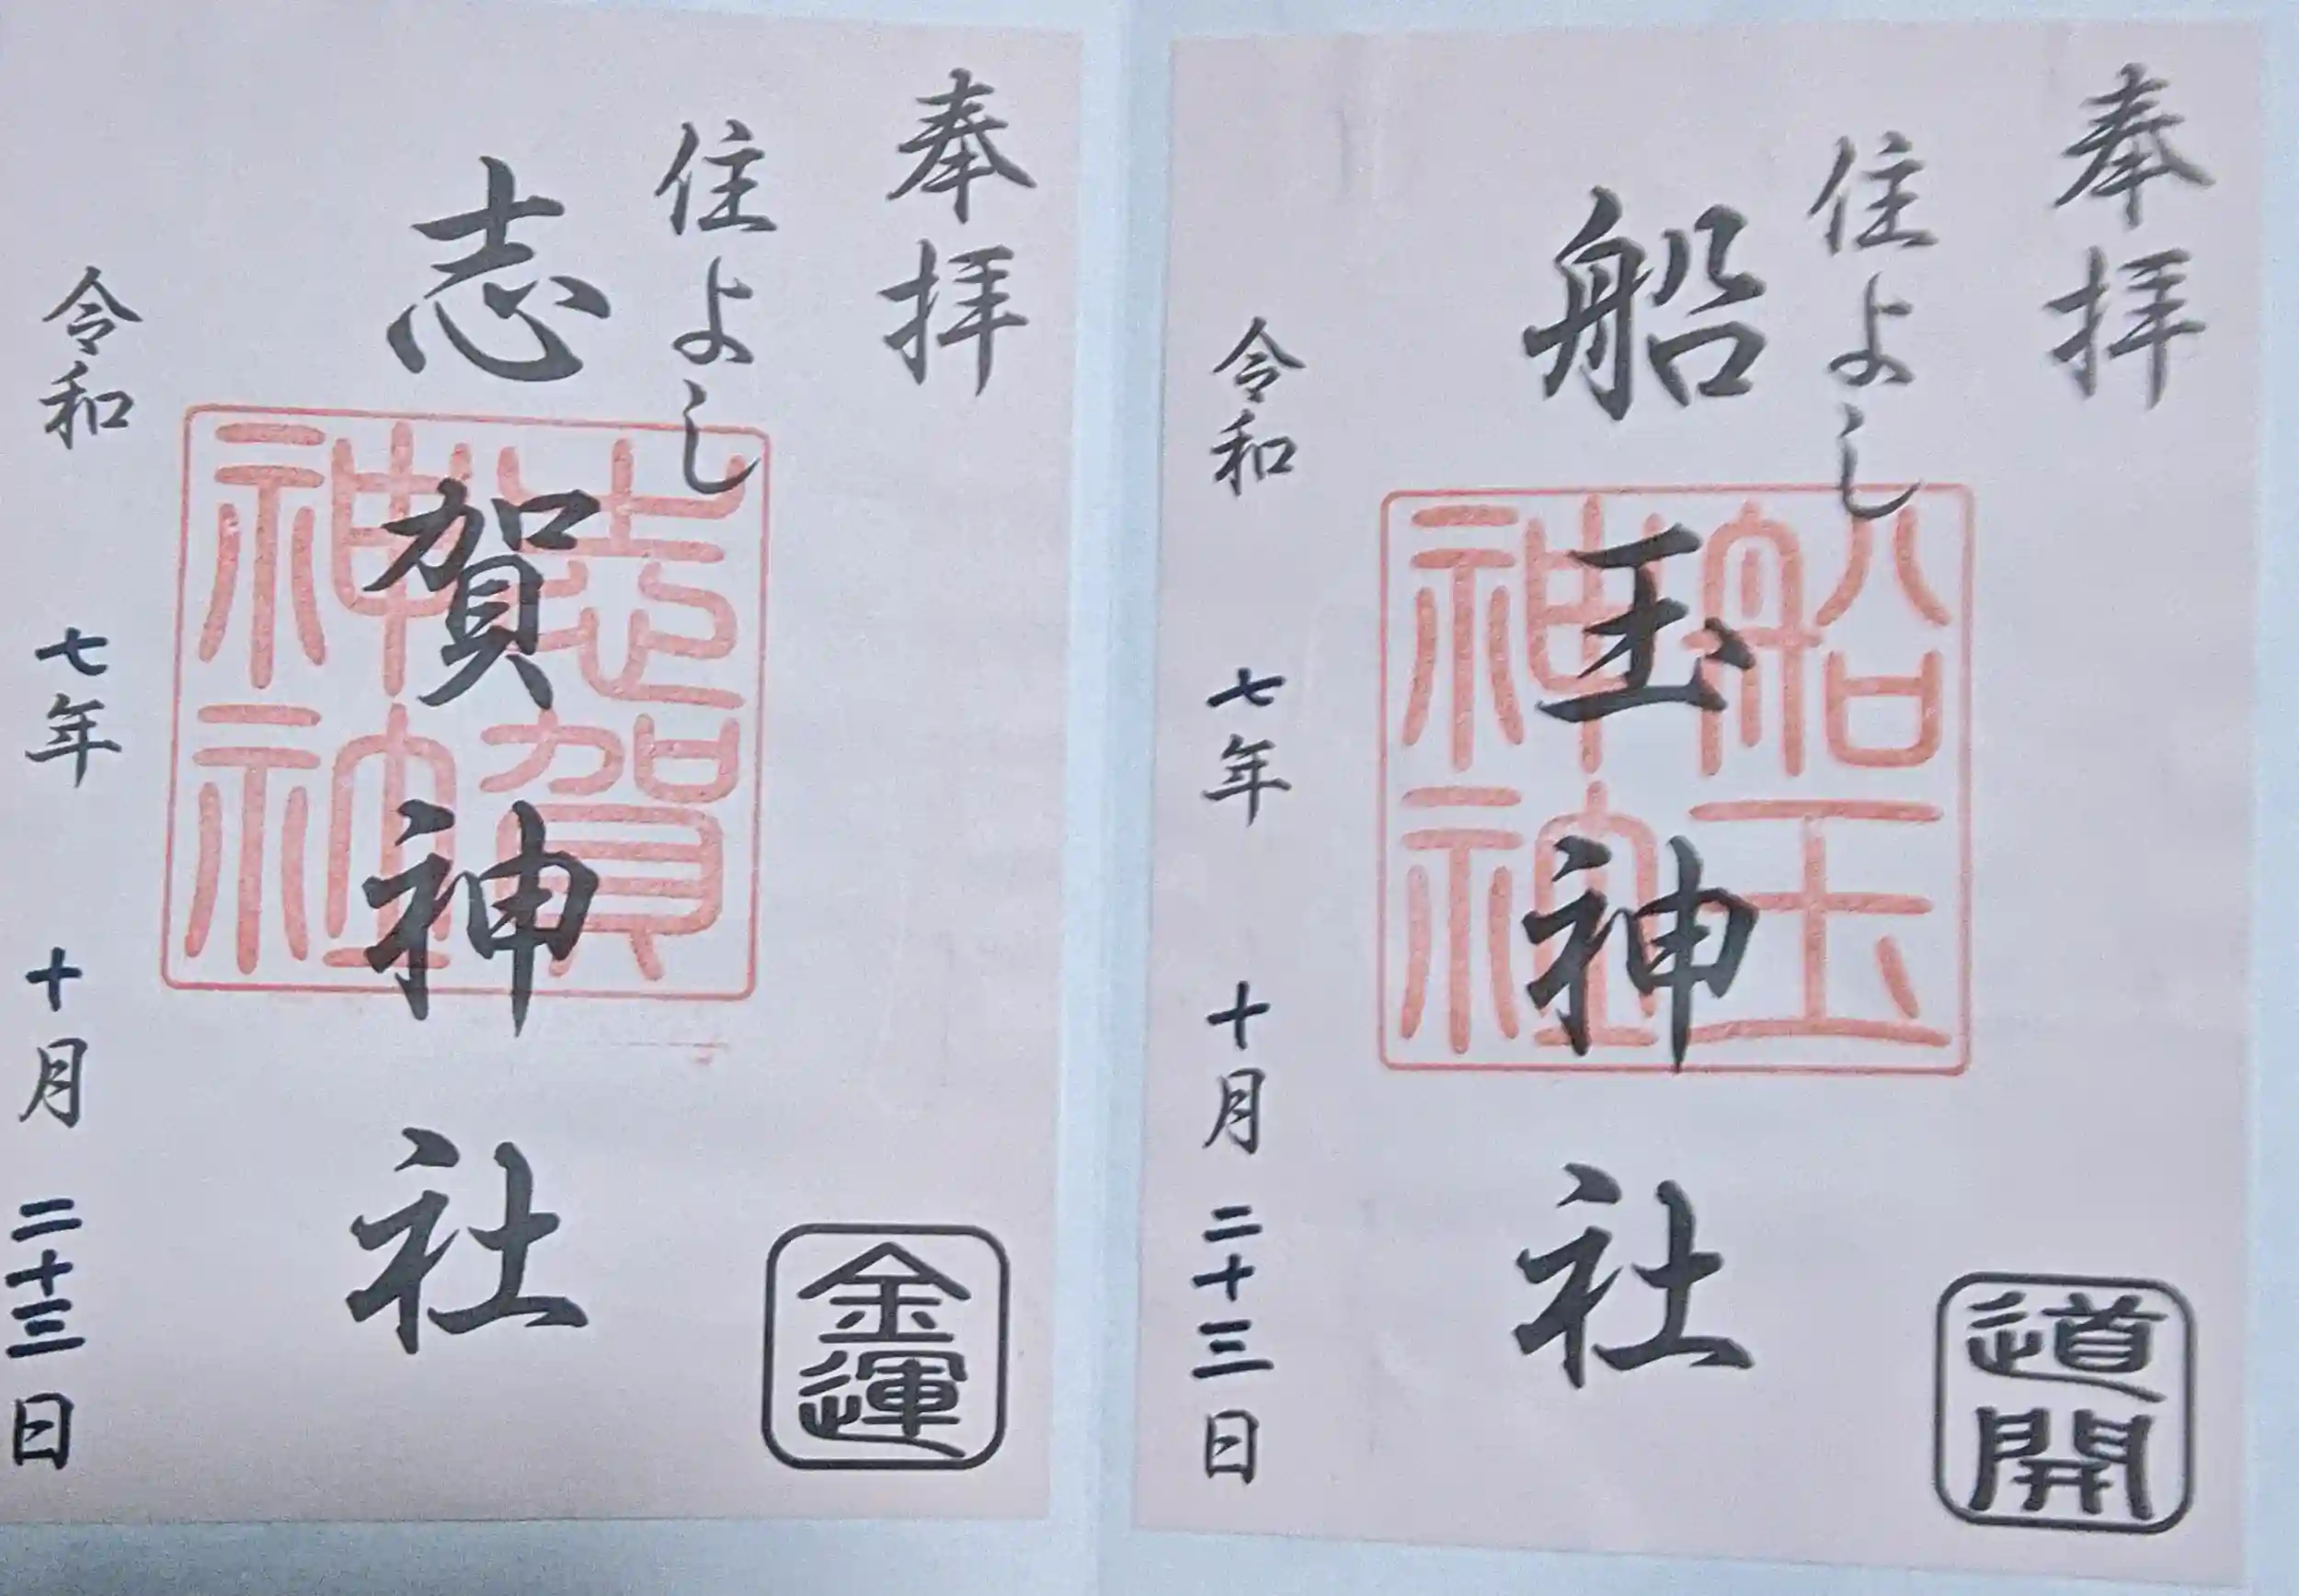 奉拝
住よし
船玉神社
船玉
神社
令和七年十月二十三日
道開
奉拝
住よし
志賀神社
志賀
神社
令和七年十月二十三日
金運